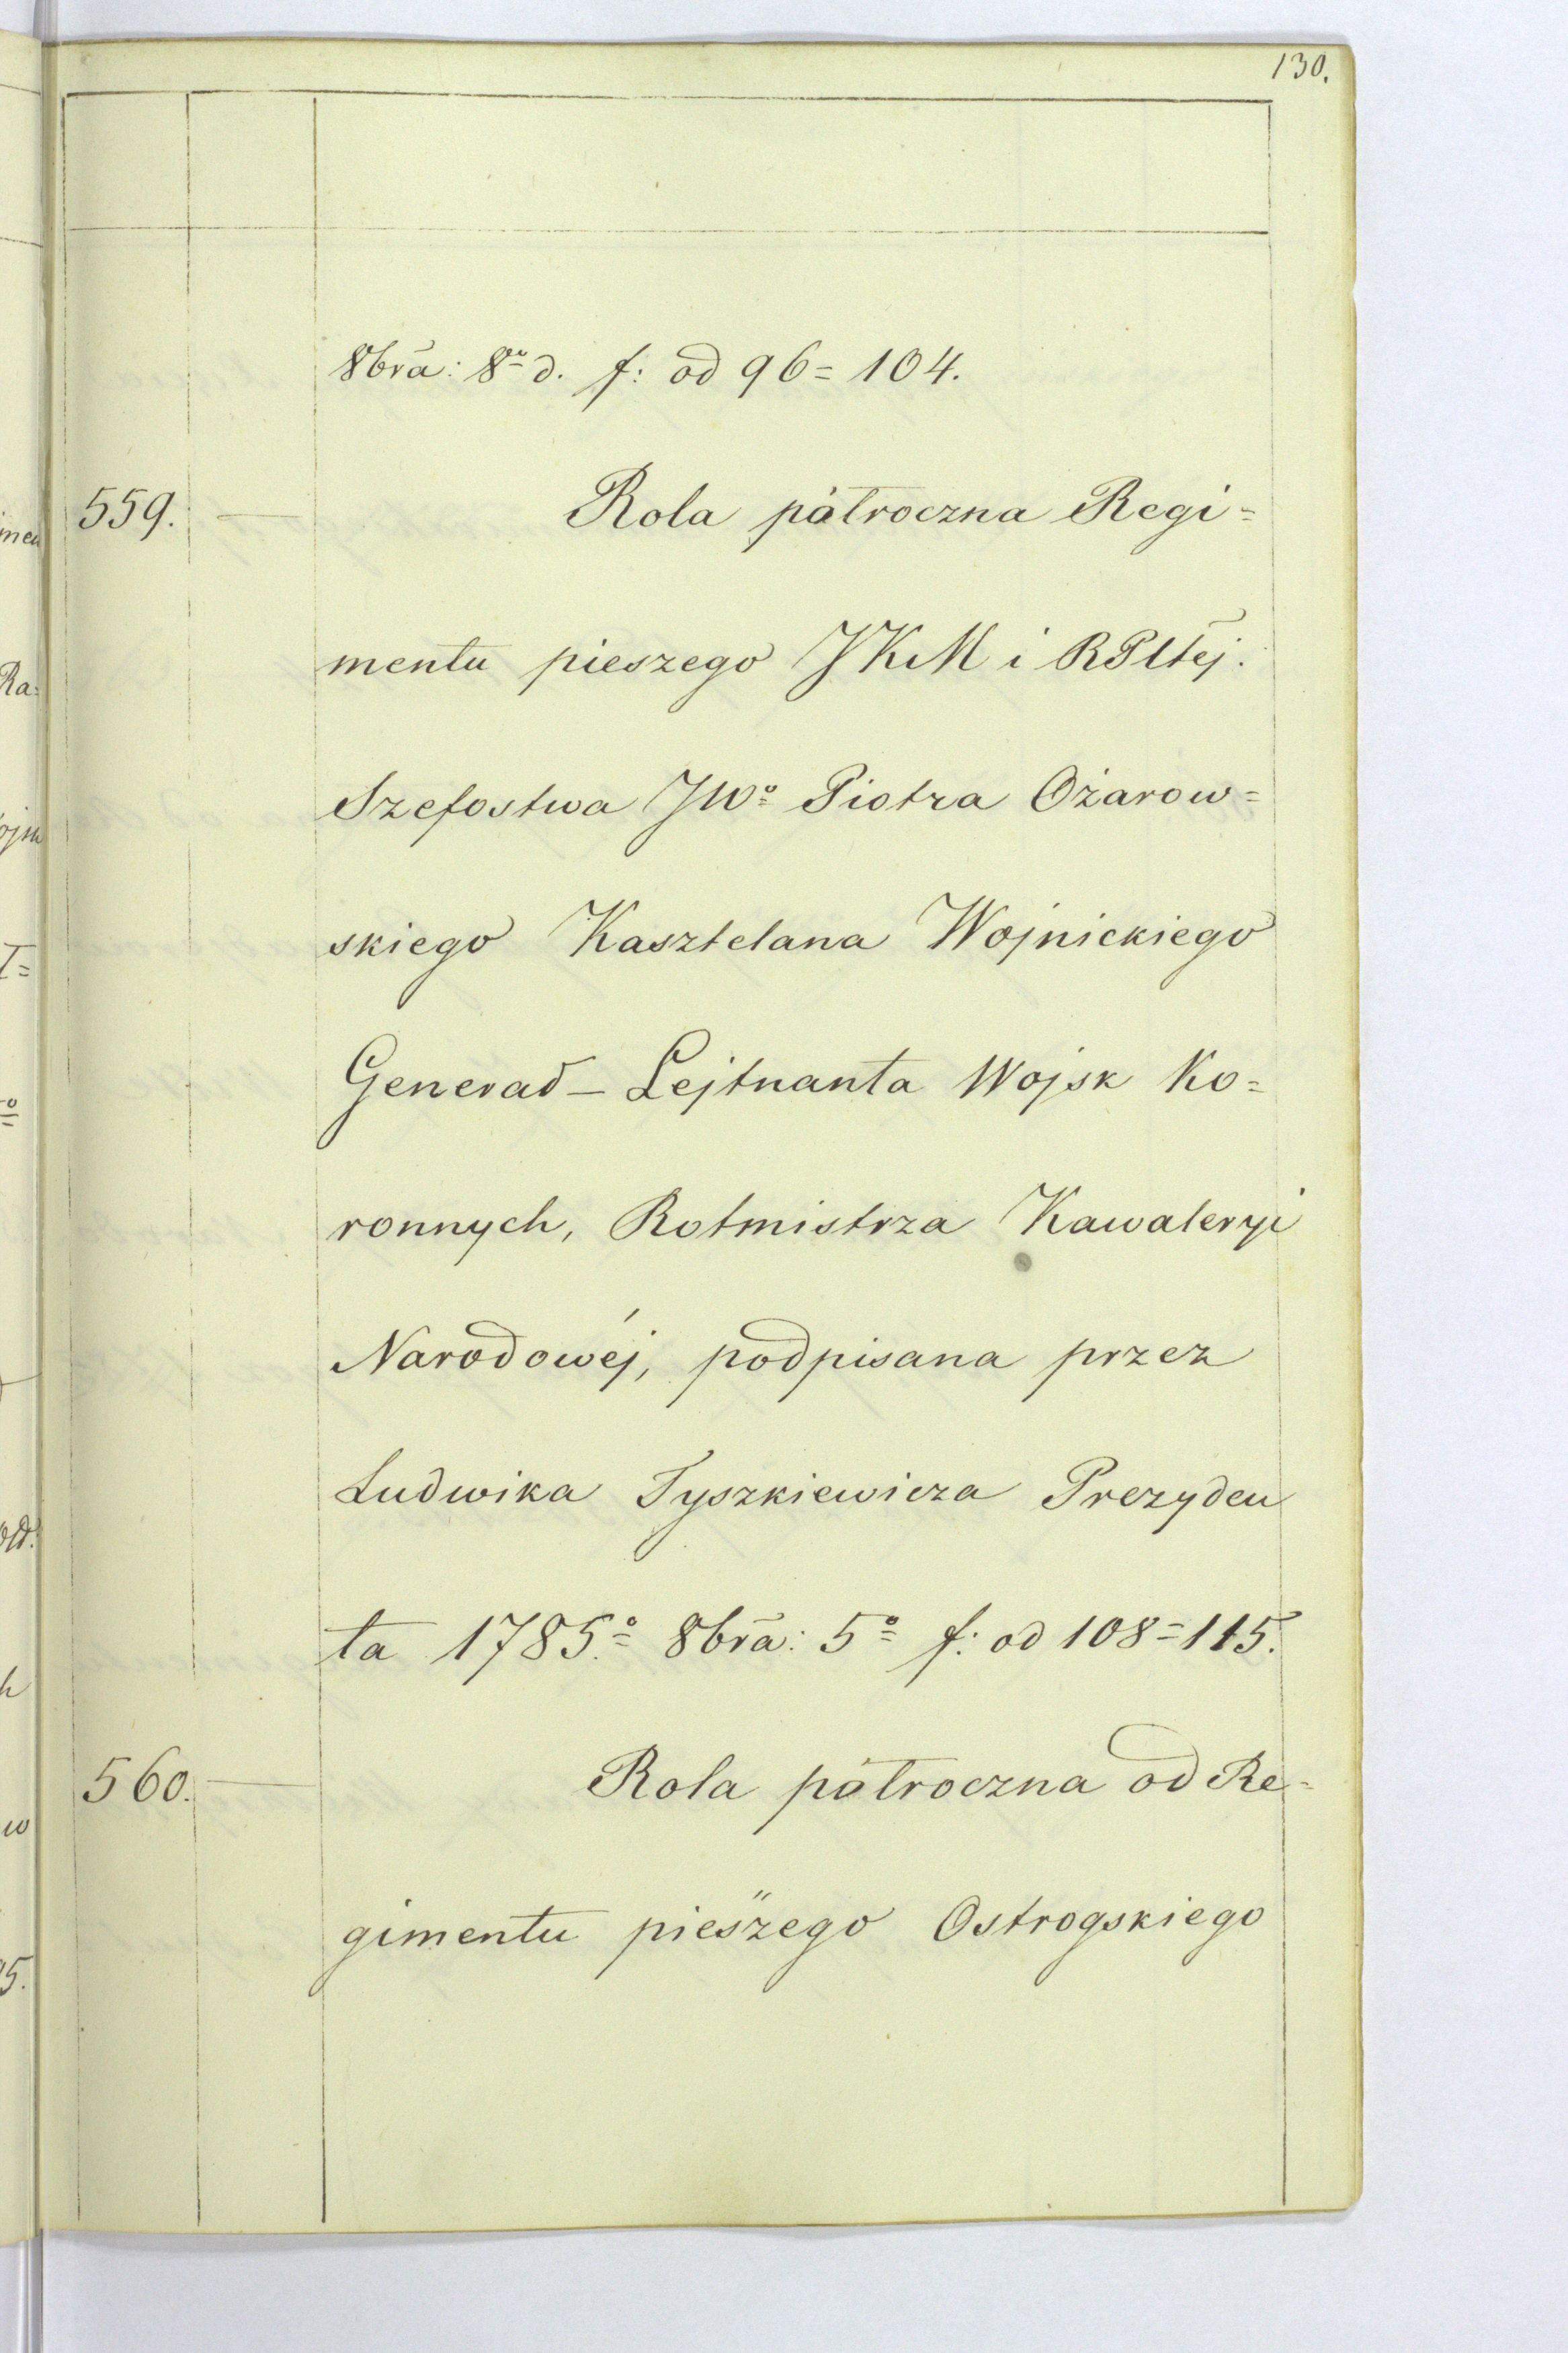 130.
8bra: 8º d. f: od 96 = 104.
559. — Rola półroczna Regi=
mentu pieszego JKM i RPltej.
Szefostwa JWº Piotra Ożarow=
skiego Kasztelana Wojnickiego
Generał - Lejtnanta Wojsk Ko=
ronnych, Rotmistrza Kawaleryi
Narodowéj, podpisana przez
Ludwika Tyszkiewicza Prezyden
ta 1785º 8bra: 5º f: od 108 = 115.
560. — Rola półroczna od Re=
gimentu pieszego Ostrogskiego